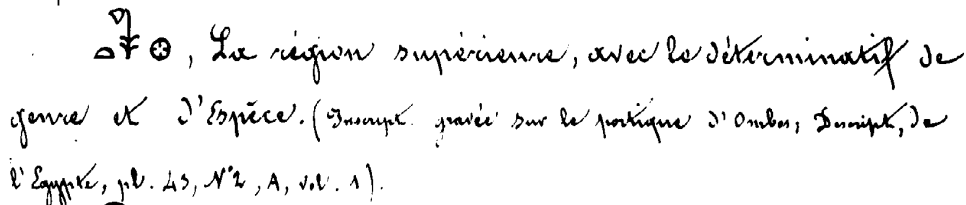 , La région supérieure, avec le déterminatif de
genre et d'Espèce. (Inscript. gravée sur le portique d'Ombos, Descript. de
l'Egypte, pl. 43, N°2, A, vol. 1).